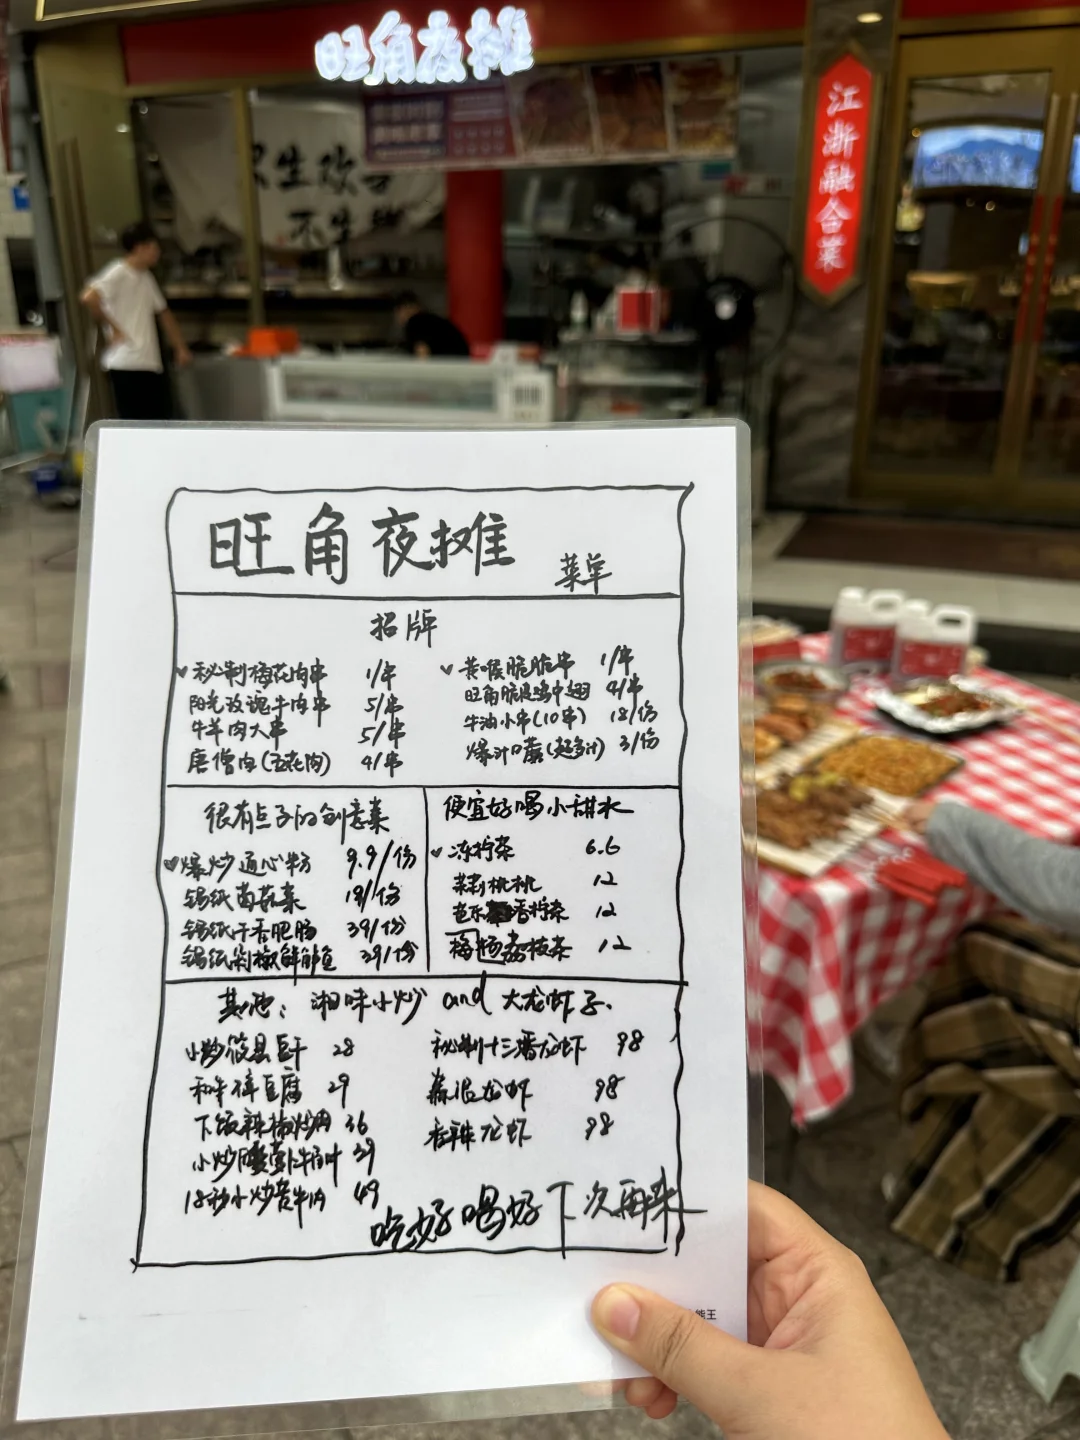 旺角夜摊
江浙融合菜
旺角夜摊
菜单
招牌
秘制梅花肉串 1/串
阳光玫瑰牛肉串 5/串
牛羊肉大串 5/串
唐僧肉(五花肉) 4/串
黄喉脆脆串 1/串
旺角脆皮鸡中翅 4/串
牛油小串(10串) 18/份
爆汁口蘑(超多汁) 3/份
很有点子的创意菜
爆炒通心粉 9.9/份
锡纸菌菇菜 19/份
锡纸汁香肥肠 39/份
锡纸剁椒鲜鱿鱼 39/份
便宜好喝小甜水
冻柠茶 6.6
茉莉桃桃 12
芭乐香柠茶 12
梅杨荔枝茶 12
其他: 湘味小炒 and 大龙虾子.
小炒攸县豆干 28
和牛碎豆腐 29
下饭辣椒炒肉 36
小炒腰 39
18秒小炒黄牛肉 49
秘制十三香龙虾 98
蒜泥龙虾 98
香辣龙虾 98
吃好喝好下次再来
熊王